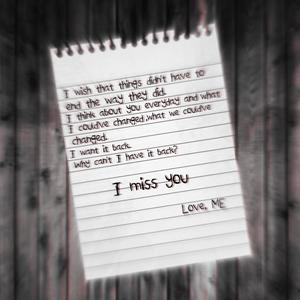 I wish that things didn't have to
end the way they did.
I think about you everyday and what
I could've changed, what we could've
changed.
I want it back.
Why can't I have it back?
I miss you
Love, ME